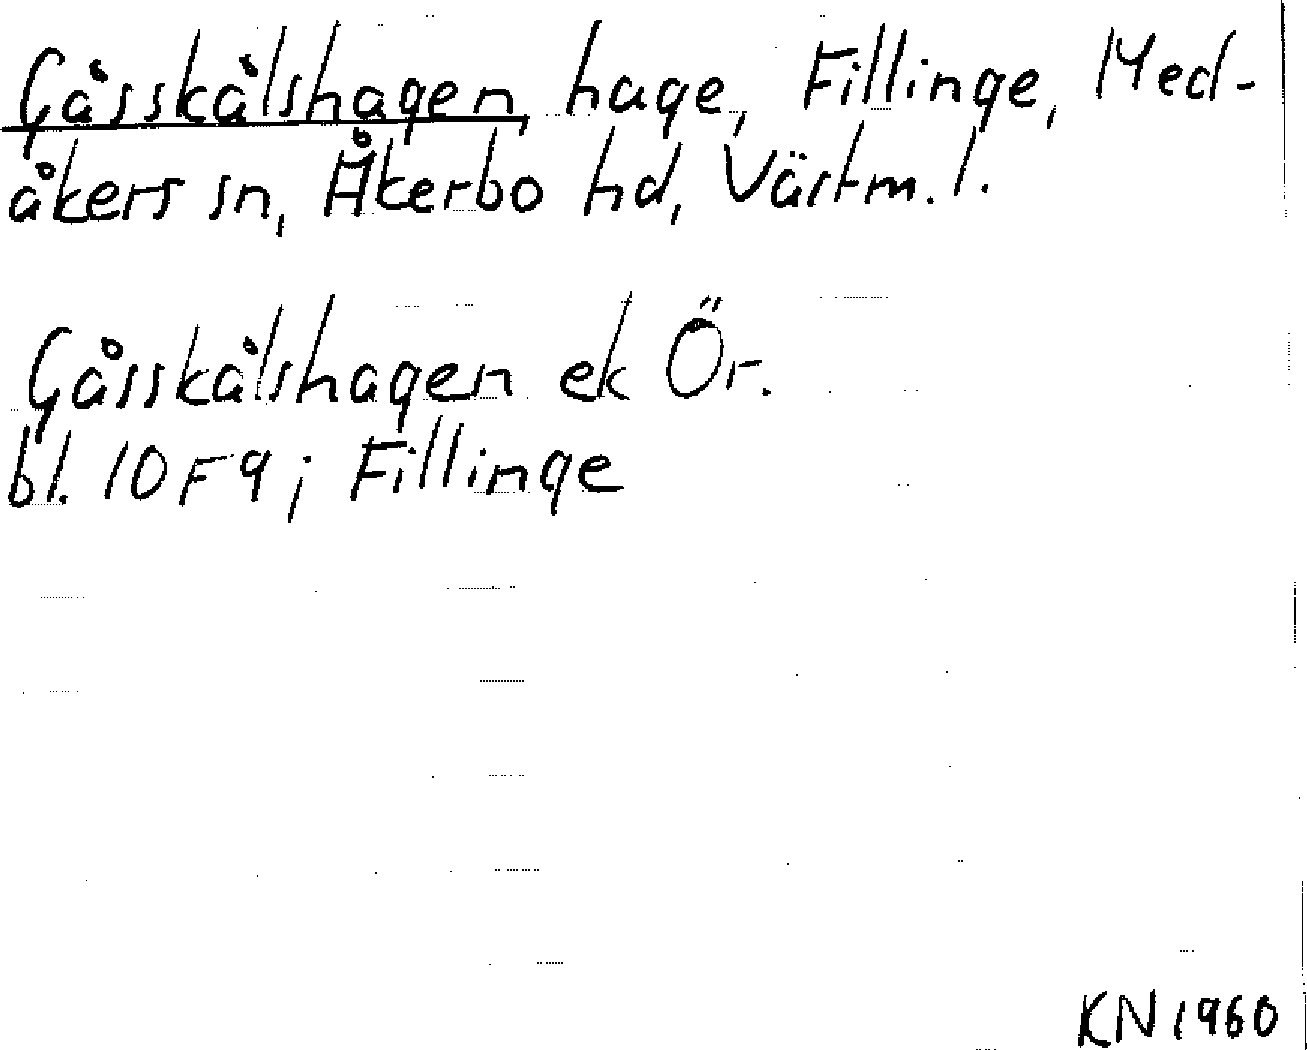 Gåsskålshagen, hage, Fillinge, Med-
åkers sn, Åkerbo hd, Västm. l.
Gåsskålshagen ek Ör.
bl. 10 F 9; Fillinge
KN 1960